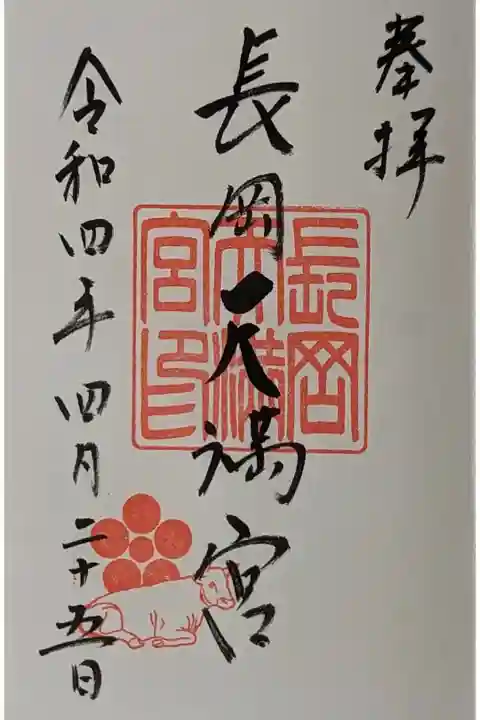 奉拝
長岡天満宮
長岡天満宮印
令和四年四月二十五日